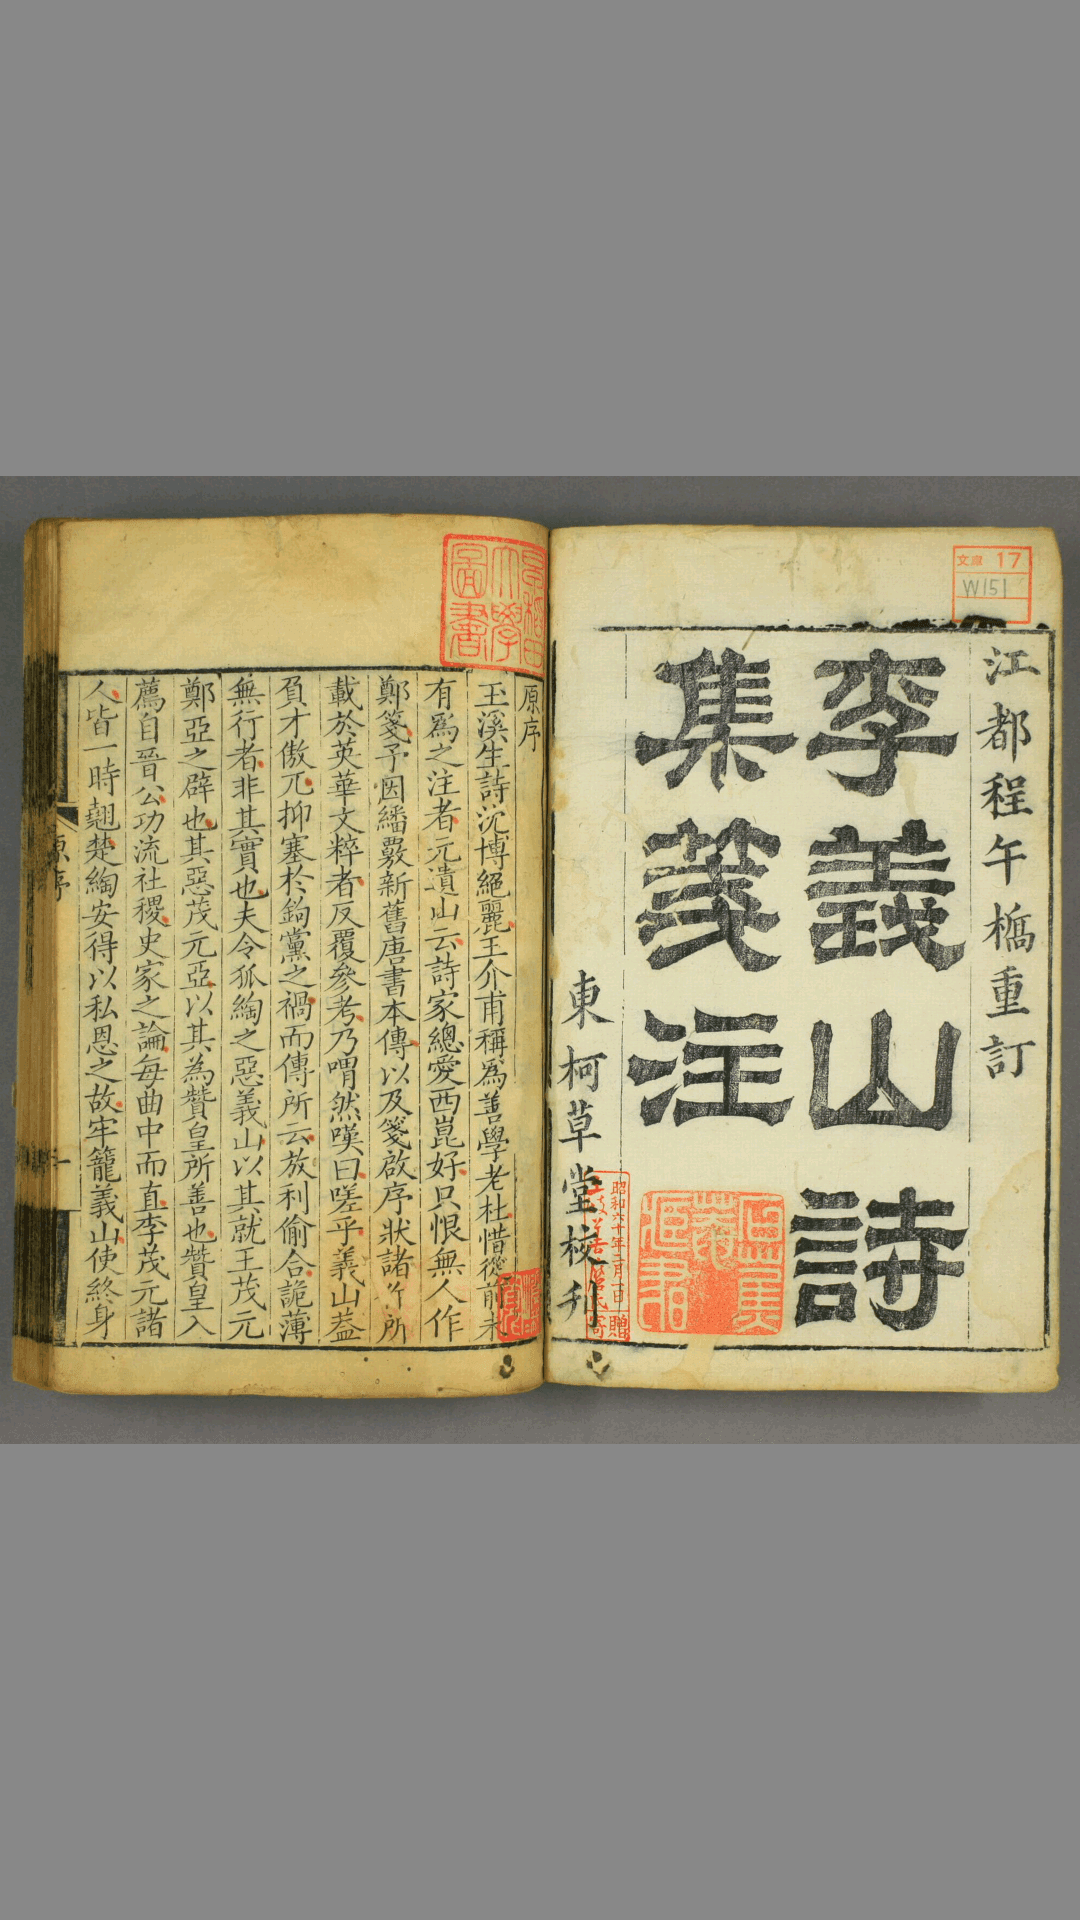 江都程午橋重訂
李義山詩
集箋注
東柯草堂校刋
文庫 17
W151
昭和六十年三月一日
贈
原序
玉溪生詩沈博絕麗王介甫稱爲善學老杜惜從前未
有爲之注者元遺山云詩家總愛西崑好只恨無人作
鄭箋予因繙覈新舊唐書本傳以及箋啟序狀諸作所
載於英華文粹者反覆參考乃喟然嘆曰嗟乎義山蓋
負才傲兀抑塞於鉤黨之禍而傳所云放利偷合詭薄
無行者非其實也夫令狐綯之惡義山以其就王茂元
鄭亞之辟也其惡茂元亞以其為贊皇所善也贊皇入
薦自晉公功流社稷史家之論每曲中而直李茂元諸
人皆一時翹楚綯安得以私恩之故牢籠義山使終身
原序
一